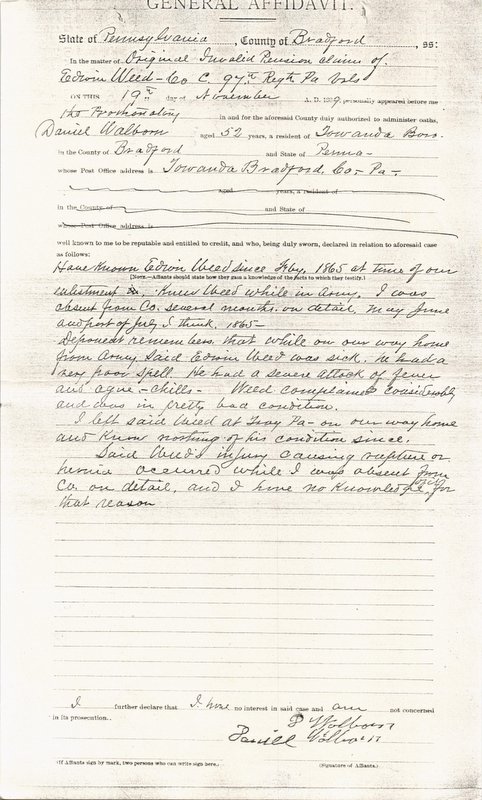 GENERAL AFFIDAVIT.
State of Pennsylvania, County of Bradford, ss:
In the matter of Original Invalid Pension claim of
Edwin Weed - Co C. 97th Regt Pa Vols
ON THIS 19th day of November A. D. 1889, personally appeared before me
the Prothonotary in and for the aforesaid County duly authorized to administer oaths,
Daniel Walborn aged 52 years, a resident of Towanda Boro.
in the County of Bradford and State of Penna-
whose Post Office address is Towanda Bradford, Co- Pa-
aged years, a resident of
in the County of and State of
whose Post Office address is
well known to me to be reputable and entitled to credit, and who, being duly sworn, declared in relation to aforesaid case
as follows:
Have Known Edwin Weed since Feby. 1865 at time of our
[NOTE.—Affiants should state how they gain a knowledge of the facts to which they testify.]
enlistment. Knew Weed while in Army. I was
absent from Co. several months on detail, May June
and part of July I think, 1865-
Deponent remembers that while on our way home
from Army said Edwin Weed was sick. he had a
very poor spell. He had a severe attack of fever
and ague - chills - Weed complained considerably
and was in pretty bad condition.
I left said Weed at Troy Pa- on our way home
and Know nothing of his condition since.
Said Weed's injury causing rupture or
hernia occurred while I was absent from
Co. on detail, and I have no Knowledge of it for
that reason
I further declare that I have no interest in said case and am not concerned
in its prosecution.
D Walborn
Daniell Walborn
(If Affiants sign by mark, two persons who can write sign here.) (Signature of Affiants.)